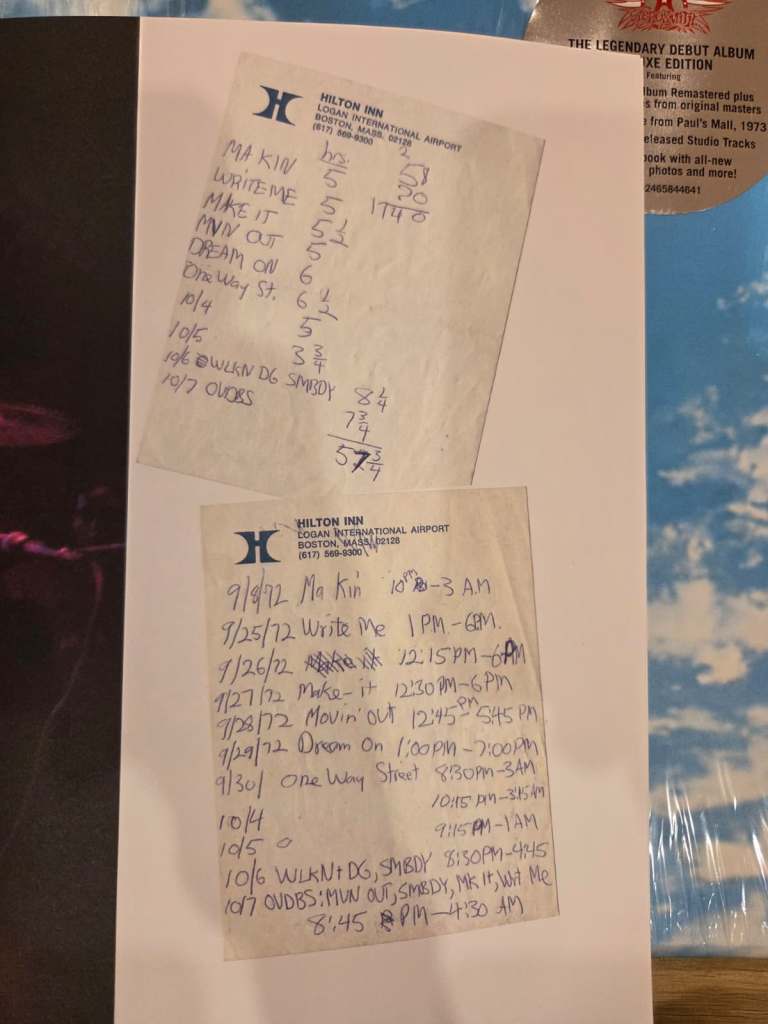 THE LEGENDARY DEBUT ALBUM
XE EDITION
Featuring
lbum Remastered plus
s from original masters
e from Paul's Mall, 1973
eleased Studio Tracks
ook with all-new
photos and more!
2465844641
HILTON INN
LOGAN INTERNATIONAL AIRPORT
BOSTON, MASS. 02128
(617) 569-9300
hrs.
MA KIN 5
WRITE ME 5
MAKE IT 5 1/2
MVN OUT 5
DREAM ON 6
One Way St. 6 1/2
10/4 5
10/5 3 3/4
10/6 WLKN DG SMBDY 8 1/4
10/7 OVDBS 7 3/4
57 3/4
2
58
20
1140
HILTON INN
LOGAN INTERNATIONAL AIRPORT
BOSTON, MASS. 02128
(617) 569-9300
9/8/72 Ma Kin' 10 PM - 3 A.M
9/25/72 Write Me 1 PM - 6 PM.
9/26/72 12:15 PM - 6 PM
9/27/72 Make-it 12:30 PM - 6 PM
9/28/72 Movin' Out 12:45 PM - 5:45 PM
9/29/72 Dream On 1:00 PM - 7:00 PM
9/30/ One Way Street 8:30 PM - 3 AM
10/4 10:15 PM - 3:15 AM
10/5 9:15 PM - 1 AM
10/6 WLKN + DG, SMBDY 8:30 PM - 4:45
10/7 OVDBS: MVN OUT, SMBDY, MK It, Wrt Me
8:45 PM - 4:30 AM